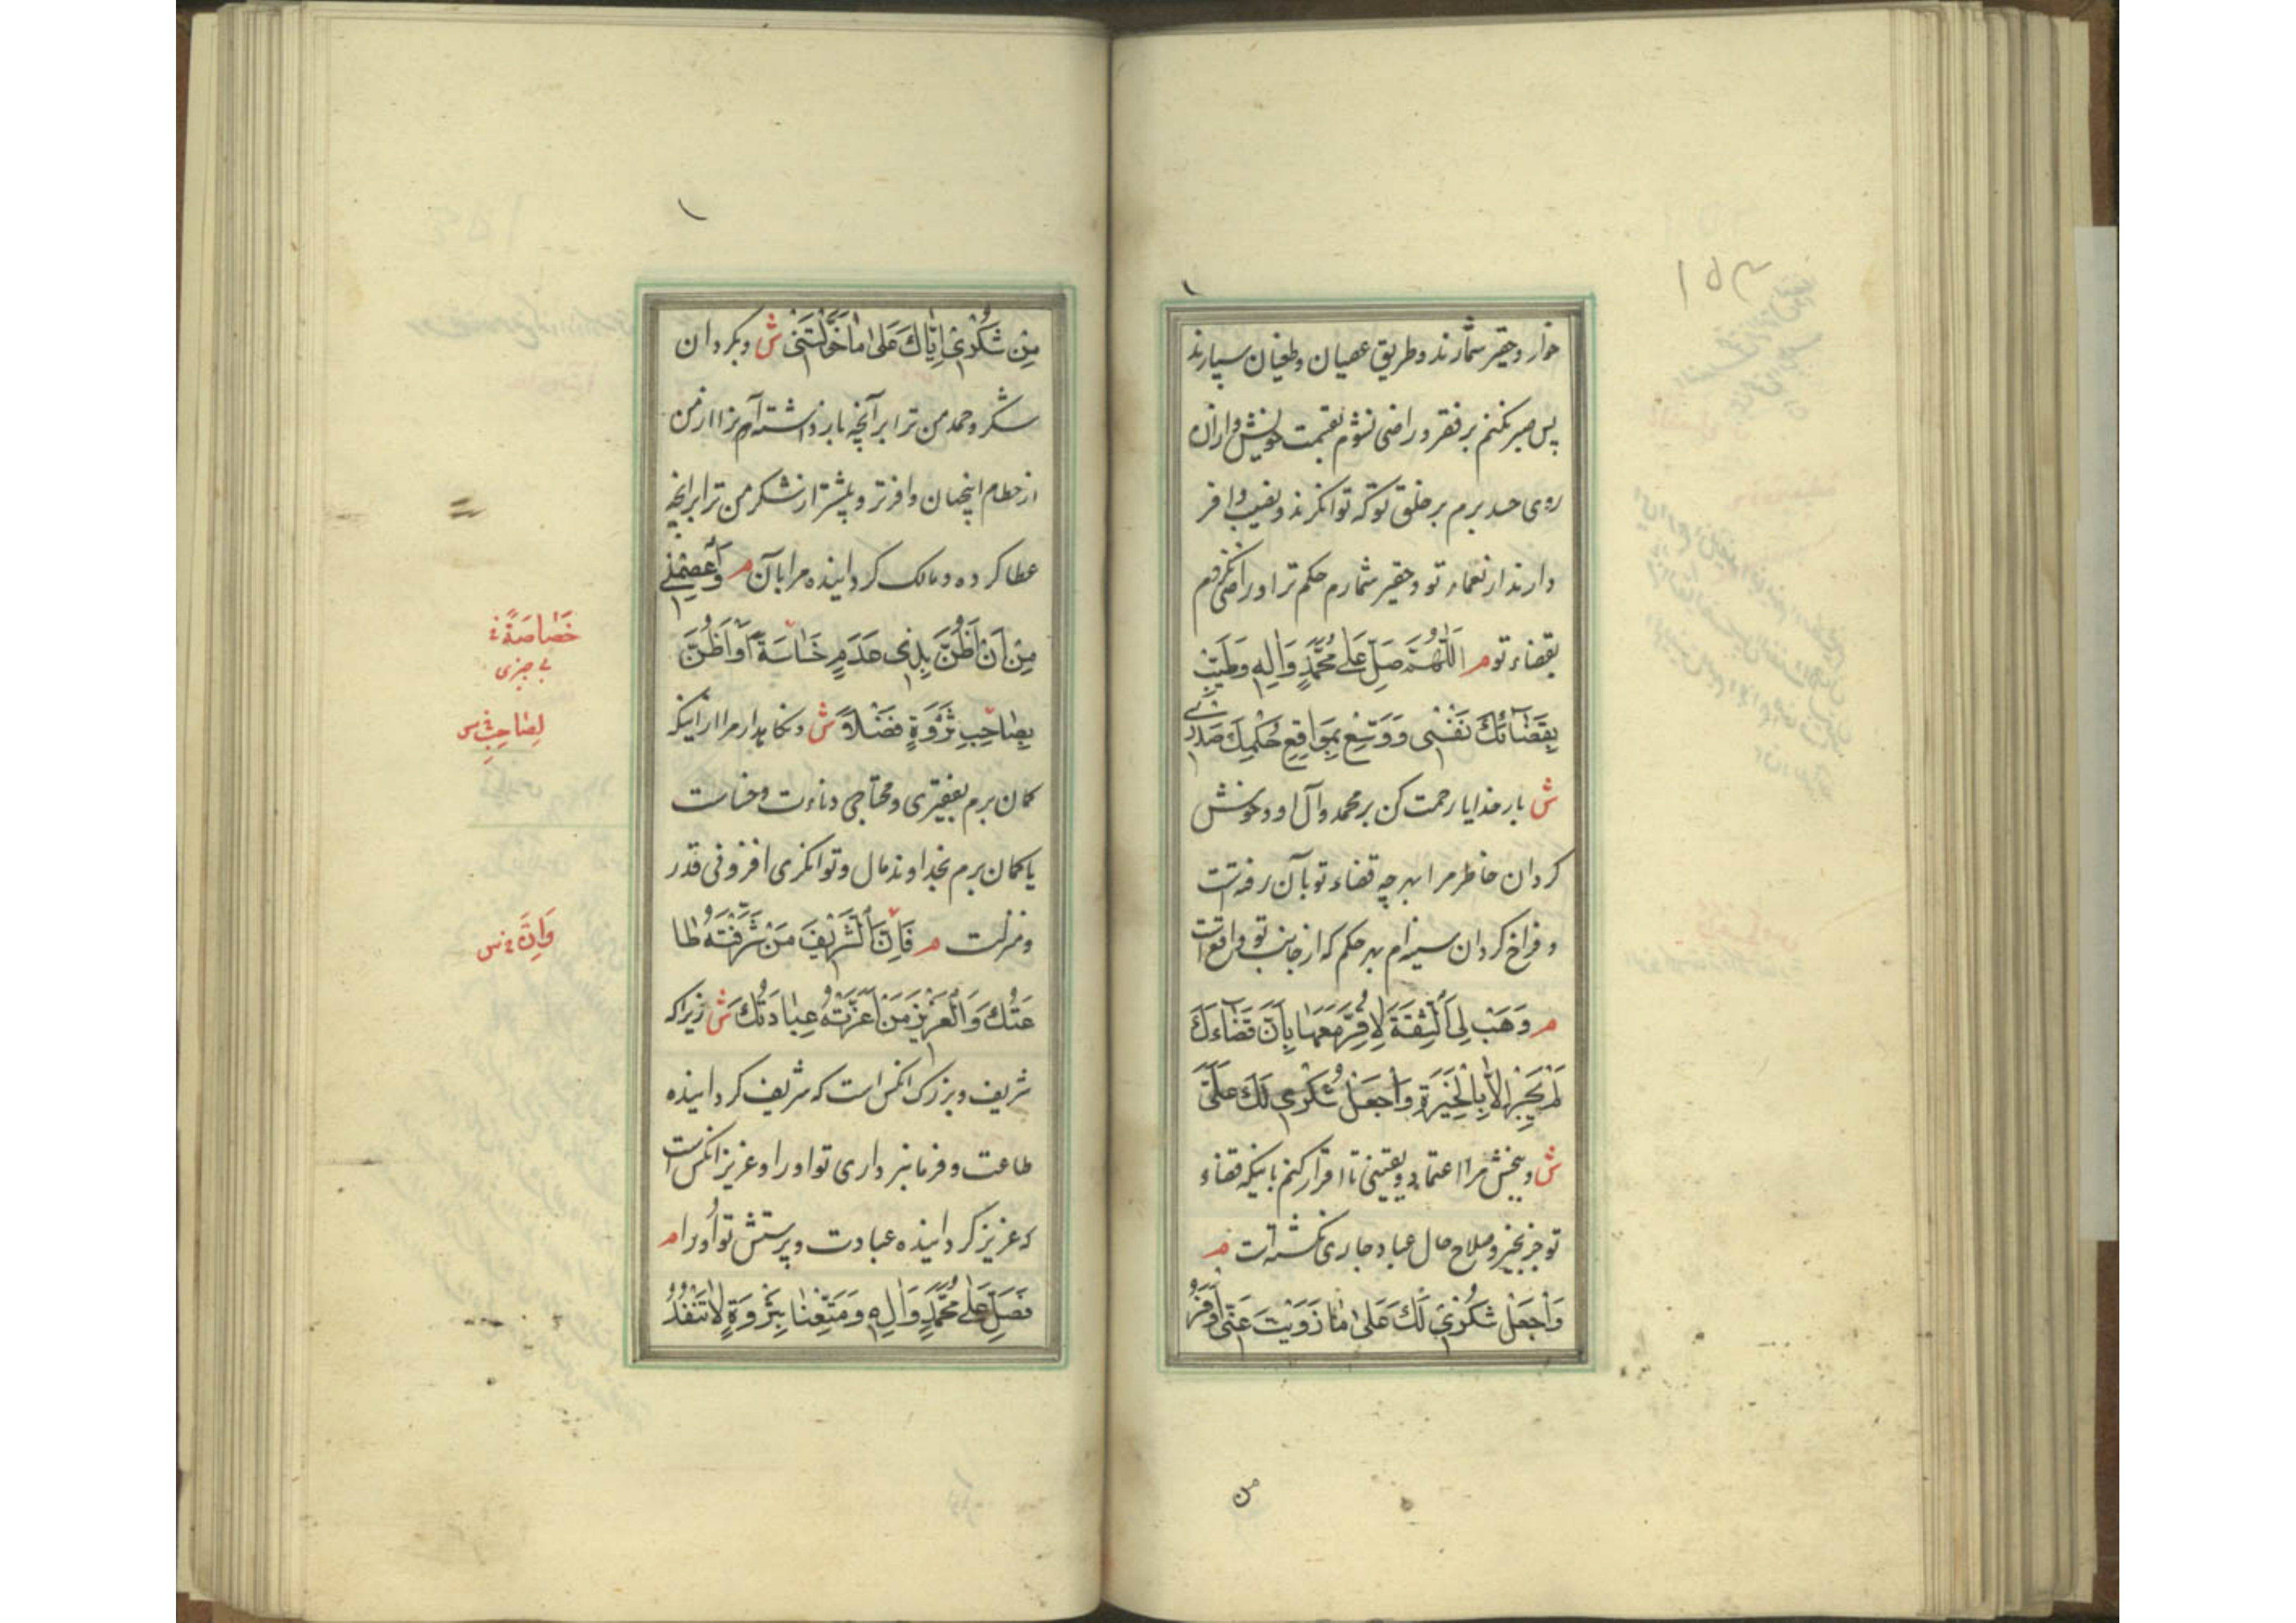 ۱۵۳
خوار و حقیر شمارند و طریق عصیان و طغیان سپارند
پس صبر نکنم بر فقر و راضی نشوم بقسمت خویش و ازان
روی حسد برم بر خلق تو که توانگرند و نصیب وافر
دارند از نعماء تو و حقیر شمارم حکم ترا و راضی نکردم
بقضاء تو م اَللّٰهُمَّ صَلِّ عَلٰی مُحَمَّدٍ وَاٰلِهِ وَطَیِّبْ
بِقَضَائِكَ نَفْسٖی وَوَسِّعْ بِمَوَاقِعِ حُكْمِكَ صَدْرٖی
ش بار خدایا رحمت کن بر محمد و آل او و خوش
کردان خاطر مرا بهر چه قضاء تو بآن رفته است
و فراخ کردان سینه‌ام بهر حکم که از جانب تو واقع است
م وَهَبْ لِیَ الثِّقَةَ لِاُقِرَّ مَعَهَا بِاَنَّ قَضَاءَكَ
لَمْ یَجْرِ اِلَّا بِالْخِیَرَةِ وَاجْعَلْ شُكْرٖی لَكَ عَلٰی
ش و ببخش مرا اعتمادی و یقینی تا اقرار کنم باینکه قضاء
تو جز بخیر و صلاح حال عباد جاری نکشته است م
وَاجْعَلْ شُكْرٖی لَكَ عَلٰی مٰا زَوَیْتَ عَنّٖی اَوْفَرَ
من
مِنْ شُكْرٖی اِیَّاكَ عَلٰی مٰا خَوَّلْتَنٖی ش و بکردان
شکر و حمد من ترا بر آنچه باز داشته آنرا از من
از حطام اینجهان وافرتر و بیشتر از شکر من ترا بر انچه
عطا کرده و مالک کردانیده مرا بآن م وَاعْصِمْنٖی
مِنْ اَنْ اَظُنَّ بِذٖی عَدَمٍ خَسَاسَةً اَوْ اَظُنَّ
بِصَاحِبِ ثَرْوَةٍ فَضْلًا ش و نکاهدار مرا از اینکه
کمان برم بفقیری و محتاجی دناءت و خساست
یا کمان برم بخداوند مال و توانکری افزونی قدر
و منزلت م فَاِنَّ الشَّرٖیفَ مَنْ شَرَّفَتْهُ طَا
عَتُكَ وَالْعَزٖیزَ مَنْ اَعَزَّتْهُ عِبَادَتُكَ ش زیرا که
شریف و بزرک انکس است که شریف کردانیده
طاعت و فرمانبرداری تو او را و عزیز انکس است
که عزیز کردانیده عبادت و پرستش تو او را م
فَصَلِّ عَلٰی مُحَمَّدٍ وَاٰلِهِ وَمَتِّعْنَا بِثَرْوَةٍ لَا تَنْفَدُ
خَصَاصَةً
بی چیزی
لِصَاحِبِ س
وَاِنَّ س